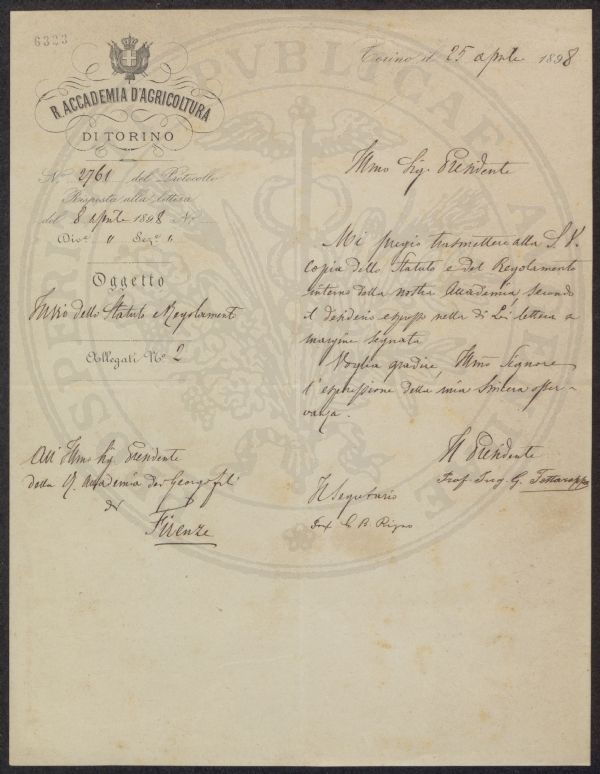 6323
R. ACCADEMIA D'AGRICOLTURA
DI TORINO
Torino il 25 aprile 1898
N. 2761 del Protocollo
Risposta alla lettera
del 8 aprile 1898 N.
Div.e " Sez.e "
Oggetto
Invio dello Statuto e Regolamenti
Allegati N.o 2
Illmo Sig. Presidente
Mi pregio trasmettere alla S. V.
copia dello Statuto e del Regolamento
interno della nostra Accademia, secondo
il desiderio espresso nella di Lei lettera a
margine segnata
Voglia gradire, Illmo Signore
l'espressione della mia sincera osser-
vanza.
All' Illmo Sig. Presidente
della R. Accademia dei Georgofili
di
Firenze
Il Presidente
Prof. Ing. G.
Il Segretario
G. B.
PVBLICAE
PROSPERI